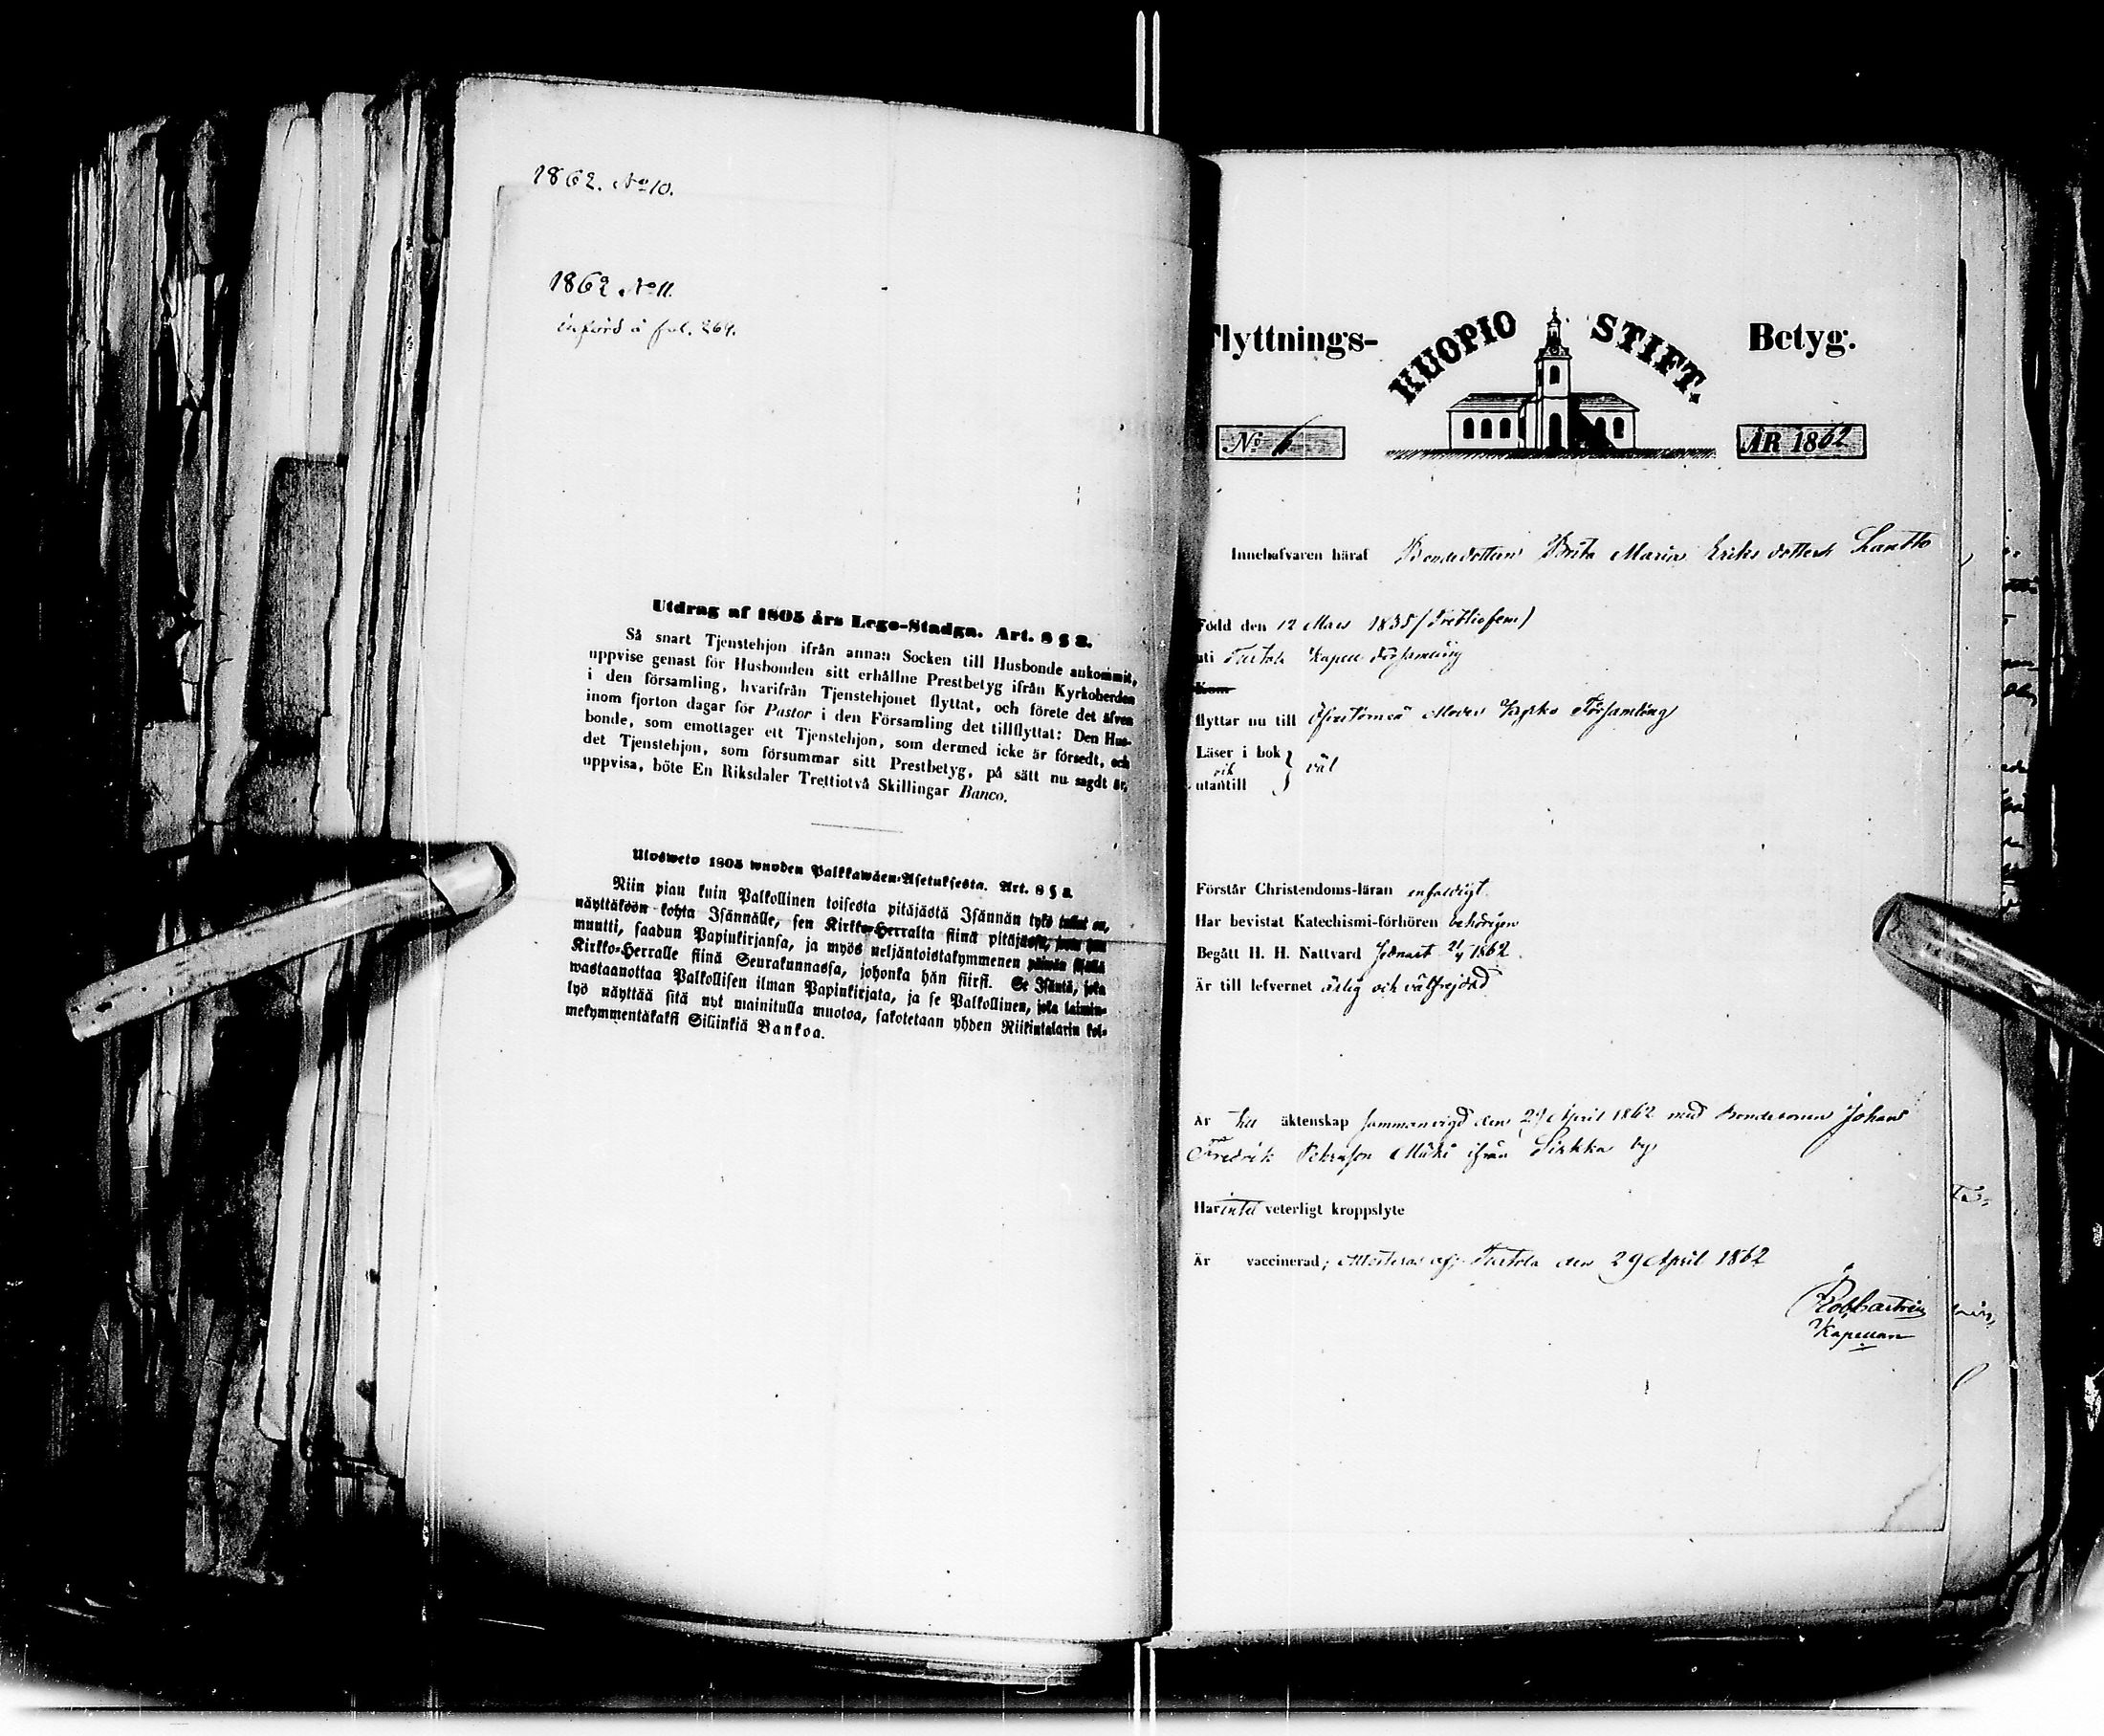 1862. No 10.
1862 No 11.
införd å fol. 269.
Utdrag af 1805 års Lego-Stadga. Art. 8 § 2.
Så snart Tjenstehjon ifrån annan Socken till Husbonde ankommit,
uppvise genast för Husbonden sitt erhållne Prestbetyg ifrån Kyrkoherden
i den församling, hvarifrån Tjenstehjonet flyttat, och förete det äfven
inom fjorton dagar för Pastor i den Församling det tillflyttat: Den Hus-
bonde, som emottager ett Tjenstehjon, som dermed icke är försedt, och
det Tjenstehjon, som försummar sitt Prestbetyg, på sätt nu sagdt är,
uppvisa, böte En Riksdaler Trettiotvå Skillingar Banco.
Ulosweto 1805 wuoden Palkkawäen-Asetuksesta. Art. 8 § 2.
Niin pian kuin Palkollinen toisesta pitäjästä Isännän tykö tullut on,
näyttäköön kohta Isännälle, sen Kirkko-Herralta siinä pitäjässä, josta hän
muutti, saadun Papinkirjansa, ja myös neljäntoistakymmenen päiwän sisällä
Kirkko-Herralle siinä Seurakunnassa, johonka hän siirsi. Se Isäntä, joka
wastaanottaa Palkollisen ilman Papinkirjata, ja se Palkollinen, joka laimin-
lyö näyttää sitä nyt mainitulla muotoa, sakotetaan yhden Riikintalarin kol-
mekymmentäkaksi Silliinkiä Bankoa.
Flyttnings- KUOPIO STIFT. Betyg.
No 6 ÅR 1862
Innehafvaren häraf Bondedottern Brita Maria Eriksdotter Lantto
Född den 12 Mars 1835 (Trettiofem)
uti Turtola Kapell Församling
Kom
flyttar nu till Öfvertorneå Moder Kyrko Församling
Läser i bok
ock väl
utantill
Förstår Christendoms-läran enfaldigt
Har bevistat Katechismi-förhören behörigen
Begått H. H. Nattvard sednast 21/4 1862.
Är till lefvernet ärlig och välfrejdad
Är till äktenskap sammanvigd den 29 April 1862 med Bondesonen Johan
Fredrik Pehrsson Mäki ifrån Sirkka by
Har intet veterligt kroppslyte
Är vaccinerad; Attesteras af; Turtola den 29 April 1862
Kapellan